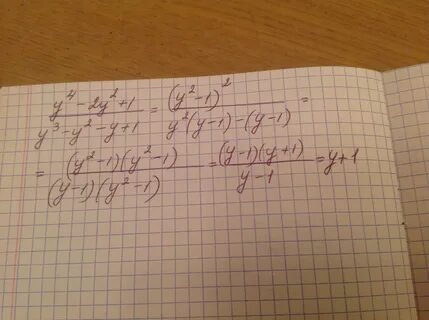 (y⁴ - 2y² + 1)/(y³ - y² - y + 1) = (y² - 1)²/(y²(y - 1) - (y - 1)) =
= (y² - 1)(y² - 1)/((y - 1)(y² - 1)) = (y - 1)(y + 1)/(y - 1) = y + 1